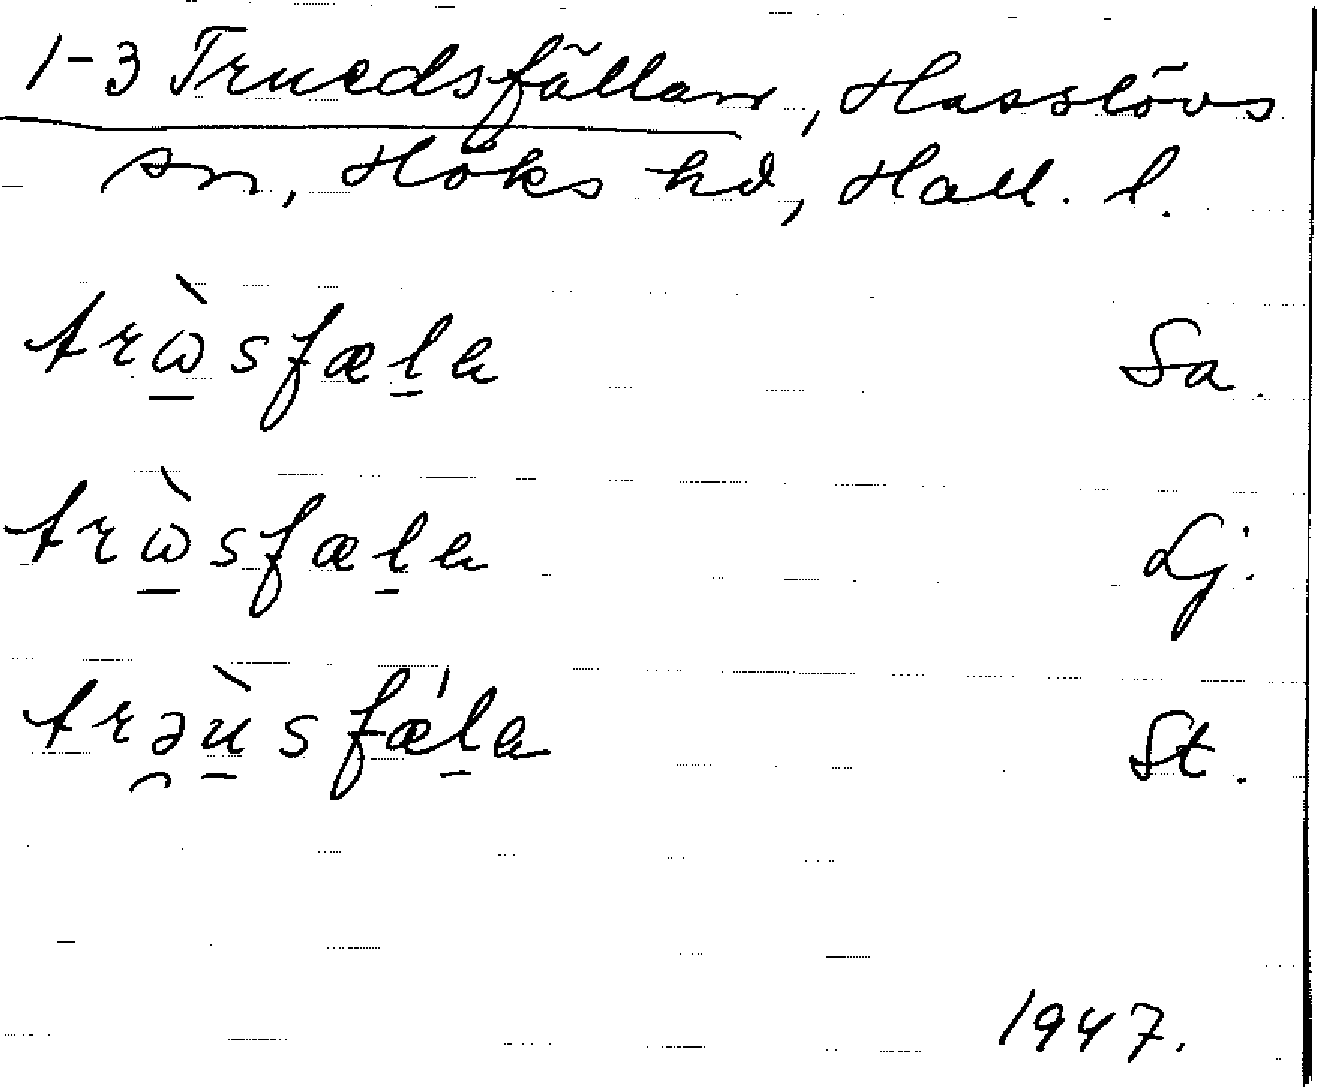 1-3 Truedsfällan, Hasslövs
sn, Höks hd, Hall. l.
trɷ̀sfæla Sa.
trɷ̀sfæla Lj.
trəùsfǽla St.
1947.